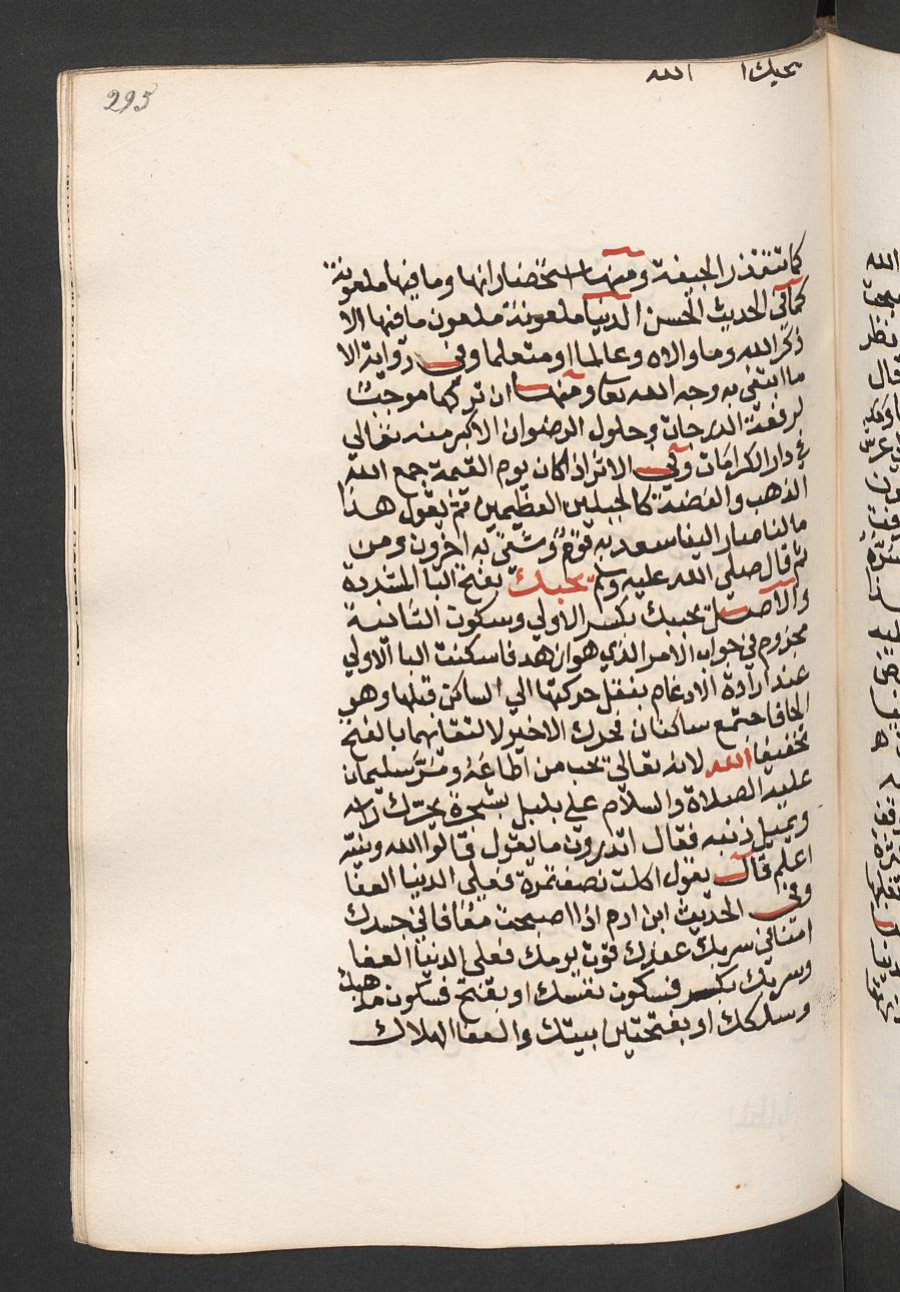 يحبك الله
295
كما تتقذر الجيفة ومنها استحضار انها وما فيها ملعونة
كما في الحديث الحسن الدنيا ملعونة ملعون ما فيها الا
ذكر الله وما والاه وعالما او متعلما وفي رواية الا
ما ابتغي به وجه الله تعا ومنها ان تركها موجب
لرفعة الدرجات وحلول الرضوان الاكبر منه تعالي
في دار الكرامات وفي الاثر اذا كان يوم القيمة جمع الله
الذهب والفضة كالجبلين العظيمين ثم يقول هذا
مالنا صار الينا سعد به قوم وشقي به اخرون ومن
ثم قال صلى الله عليه وسلم يحبك بفتح البا المشددة
والاصل يحببك بكسر الاولي وسكون الثانية
مجزوم في جواب الامر الذي هو ازهد فاسكنت البا الاولي
عند ارادة الادغام بنقل حركتها الي الساكن قبلها وهو
الحا فاجتمع ساكنان فحرك الاخير لالتقائهما بالفتح
تخفيفا الله لانه تعالي يحب من اطاعه ومر سليمان
عليه الصلاة والسلام علي بلبل بشجرة يحرك راسه
ويميل ذنبه فقال اتدرون ما يقول قالوا الله ونبيه
اعلم قال يقول اكلت نصف تمرة فعلي الدنيا العفا
وفي الحديث ابن ادم اذا اصبحت معافا في جسدك
امنا في سربك عندك قوت يومك فعلي الدنيا العفا
وسربك بكسر فسكون نفسك او بفتح فسكون مذهبك
وسلكك او بفتحتين بيتك والعفا الهلاك